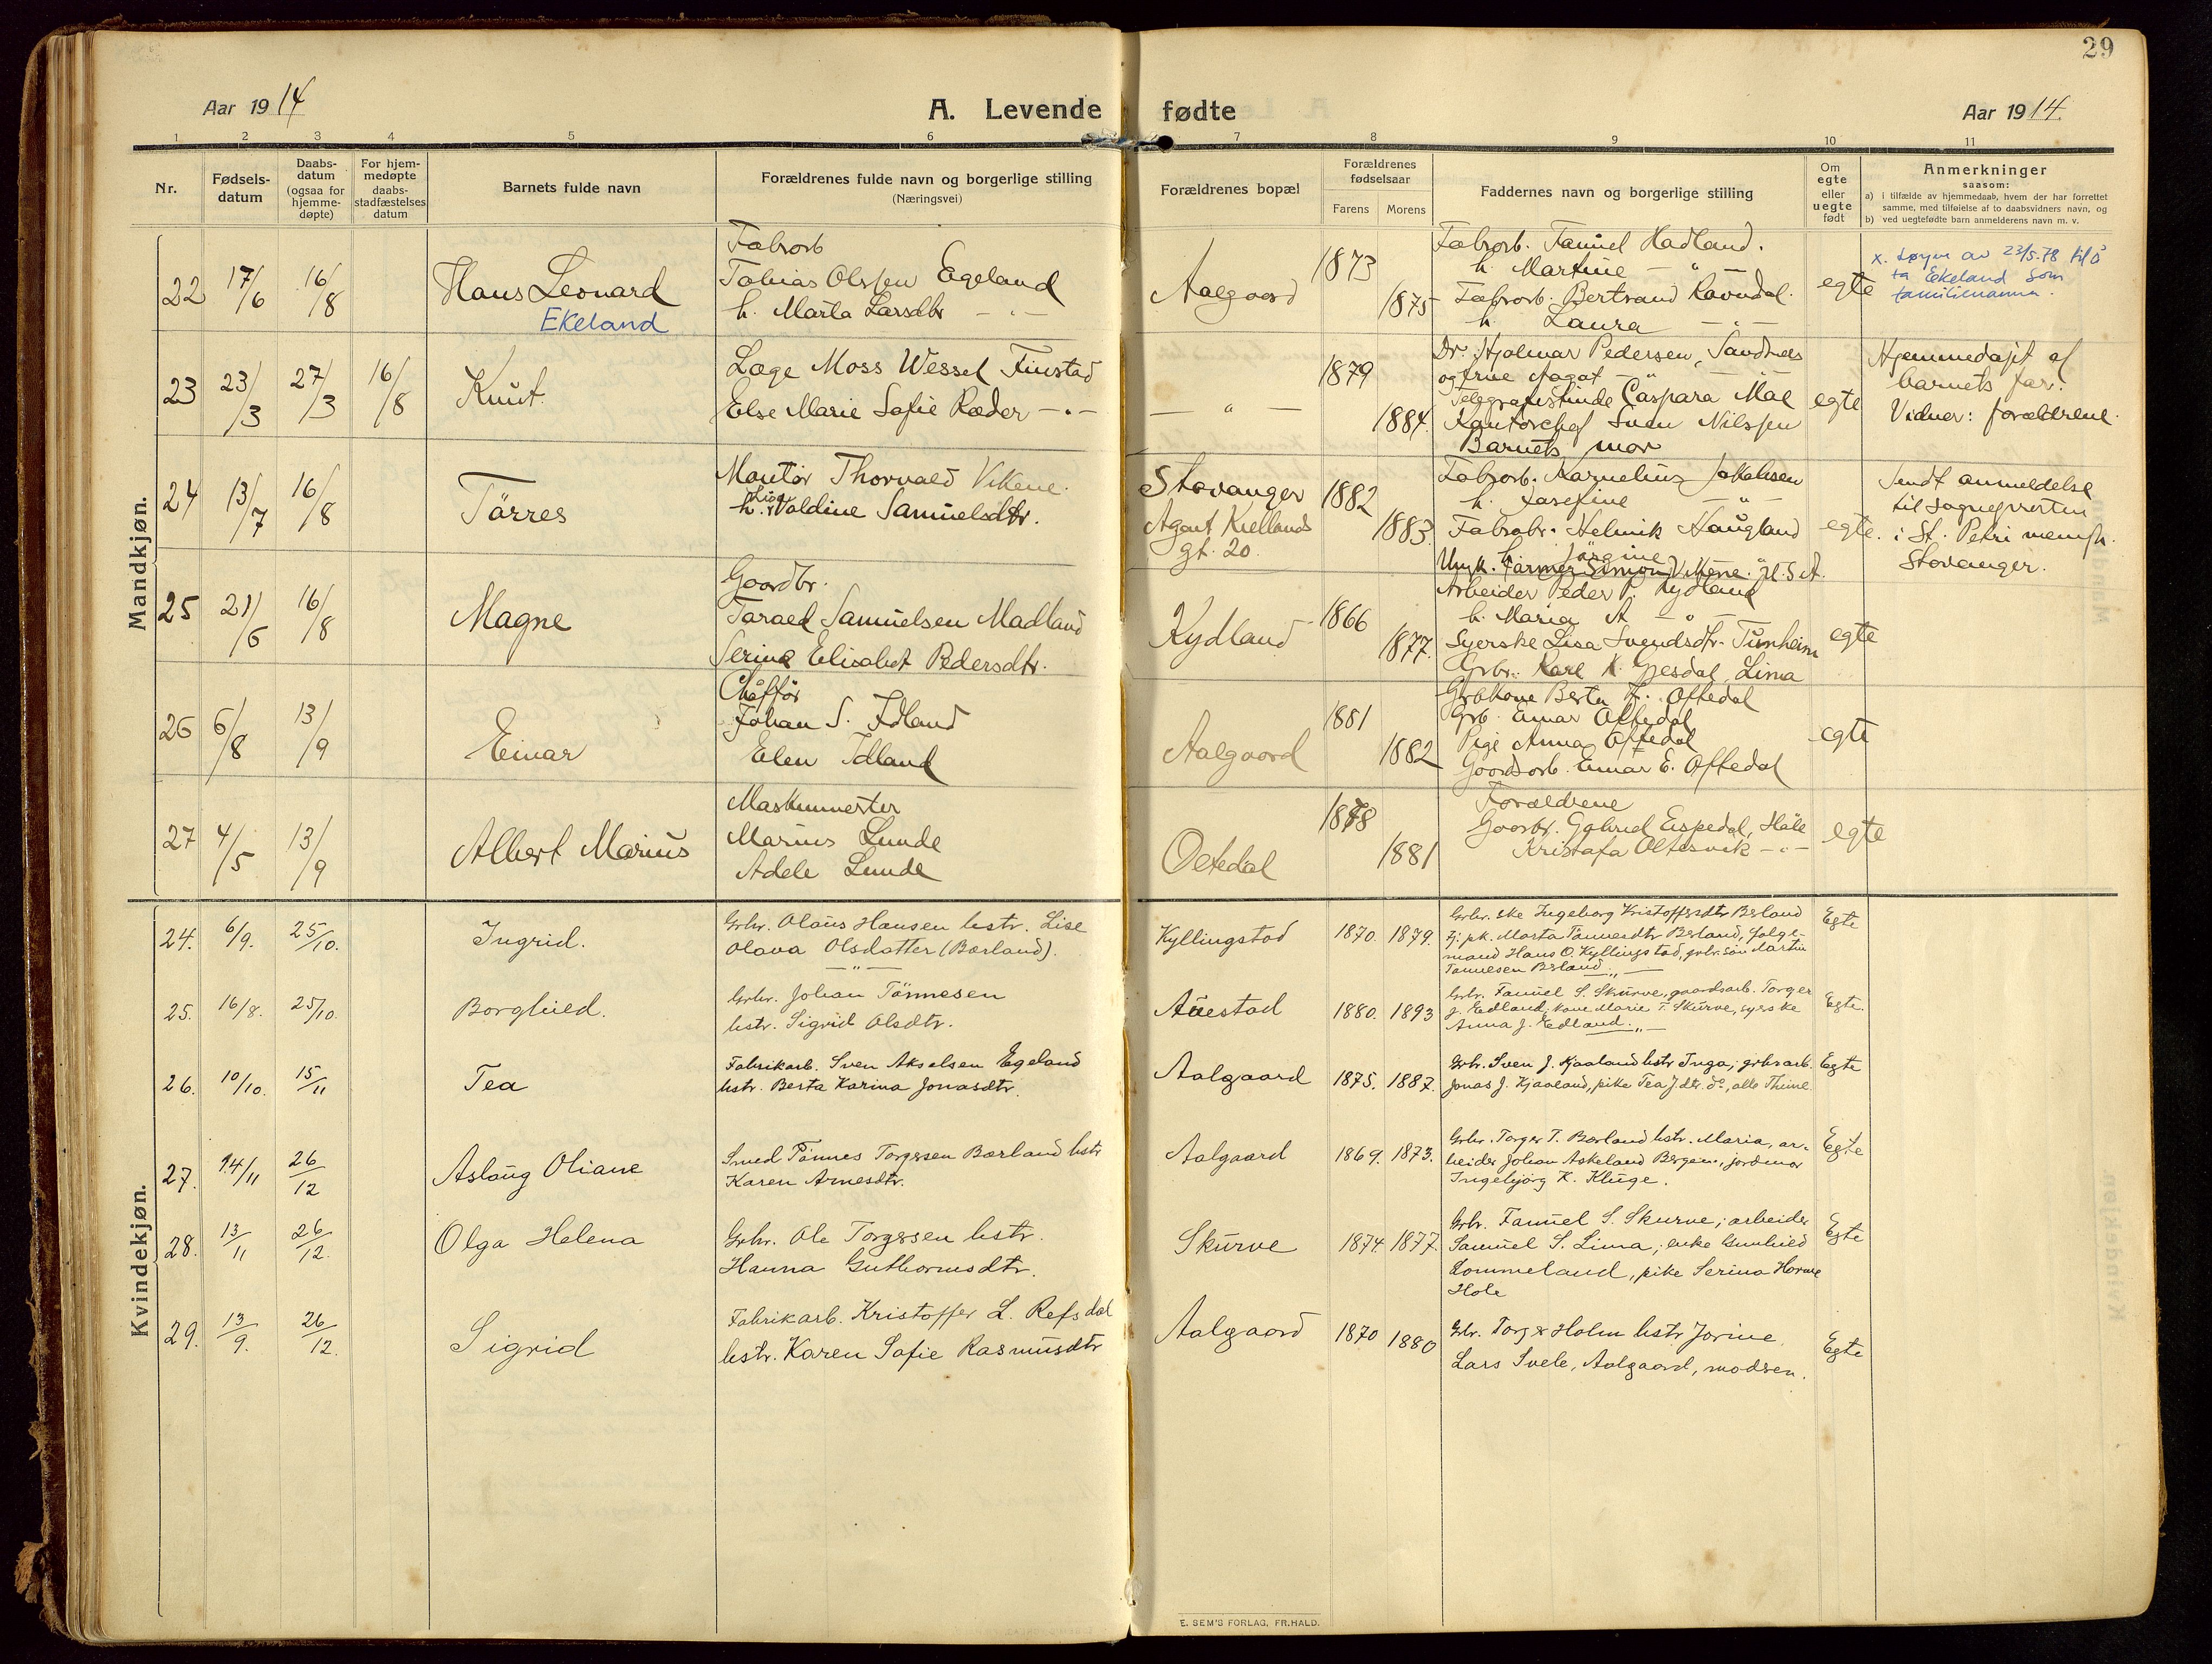 29
Aar 1914
A. Levende fødte
Aar 1914.
1 2 3 4 5 6 7 8 9 10 11
Nr.
Fødsels-
datum
Daabs-
datum
(ogsaa for
hjemme-
døpte)
For hjem-
medøpte
daabs-
stadfæstelses
datum
Barnets fulde navn
Forældrenes fulde navn og borgerlige stilling
(Næringsvei)
Forældrenes bopæl
Forældrenes
fødselsaar
Farens Morens
Faddernes navn og borgerlige stilling
Om
egte
eller
uegte
født
Anmerkninger
saasom:
a) i tilfælde av hjemmedaab, hvem der har forrettet
samme, med tilføielse af to daabsvidners navn, og
b) ved uegtefødte barn anmelderens navn m. v.
Mandkjøn.
22 17/6 16/8
Hans Leonard
Ekeland
Fabrarb
Tobias Olsen Egeland
h. Marta Larsdtr – " –
Aalgaard
1873
1875
Fabrarb. Fanuel Hadland.
h. Martine – " –
Fabrarb. Bertrand Ravndal.
h. Laura – " –
egte
x. Løyve av 23/5-78 til å
ta Ekeland som
familienamn.
23 23/3 27/3 16/8
Knut.
Læge Moss Wessel Finstad
Else Marie Sofie Ræder – " –
– " –
1879
1884.
Dr. Hjalmar Pedersen, Sandnes
og frue Aagot – " –
Telegrafistinde Caspara Mæl
Kontorchef Sven Nilssen
Barnets mor
egte
Hjemmedøpt af
barnets far.
Vidner: forældrene.
24 13/7 16/8
Tørres
Montør Thorvald Vikene.
h. Valdine Samuelsdtr.
Stavanger
Agent Kiellands
gt. 20.
1882
1883.
Fabrarb. Kornelius Jakobsen
h. Josefine – " –
Fabrabr. Helmik Haugland
h. Jørgine – " –
Ungk. Farmer Simon Vikene. U.S.A.
egte.
Sendt anmeldelse
til sognepresten
i St. Petri menigh.
Stavanger.
25 21/6 16/8
Magne
Gaardbr.
Tarald Samuelsen Madland
Serine Elisabet Pedersdtr.
Kydland
1866
1877.
Arbeider Peder P. Kydland
h. Maria A – " –
Syerske Lisa Svendsdtr. Tunheim
Grbr. Karl K. Gjesdal, Lima
egte
26 6/8 13/9
Einar
Chåffør
Johan S. Idland
Elen Idland
Aalgaard
1881
1882
Grbkone Berta T. Oftedal
Grb. Einar Oftedal
Pige Anna Oftedal
Gaardsarb. Einar E. Oftedal
egte
27 4/5 13/9
Albert Marius
Maskinmester
Marius Lunde
Adele Lunde
Oltedal
1878
1881
Forældrene
Gaarbr. Gabriel Espedal, Høle
Kristofa Oltesvik – " –
egte
Kvindekjøn.
24. 6/9. 25/10.
Ingrid.
Grbr. Olaus Hansen hstr. Lise
Olava Olsdatter (Bærland).
– " –
Kyllingstad
1870. 1879.
Grbr. eke Ingeborg Kristoffersdtr Berland
tj.pk. Marta Tønnesdtr Berland, følge-
mand Hans O. Kyllingstad, grbr.søn Martin
Tønnesen Berland. – " –
Egte
25. 16/8. 25/10.
Borghild.
Grbr. Johan Tønnesen
hstr. Sigrid Olsdtr.
Auestad
1880. 1893
Grbr. Fanuel S. Skurve, gaardsarb. Torger
J. Edland, kone Marie F. Skurve, syerske
Anna J. Edland. – " –
Egte.
26. 10/10. 15/11
Tea
Fabrikarb. Sven Akselsen Egeland
hstr. Berta Karina Jonasdtr.
Aalgaard
1875. 1887.
Grbr. Sven J. Kjaaland hstr Inga, grbrsarb.
Jonas J. Kjaaland, pike Tea Jdtr. do, alle Thime
Egte
27. 14/11 26/12
Aslaug Oliane
Smed Tønnes Torgersen Bærland hstr
Karen Arnesdtr.
Aalgaard
1869. 1873.
Grbr. Torger T. Bærland hstr. Maria, ar-
beider Johan Askeland Bergen, jordmor
Ingebjørg K. Kluge.
Egte
28. 13/11 26/12.
Olga Helena
Grbr. Ole Torgersen hstr.
Hanna Guthormsdtr.
Skurve
1874 1877.
Grbr. Fanuel S. Skurve; arbeider
Samuel S. Lima; enke Gunhild
Lommeland, pike Serina Horne
Hole
Egte
29. 13/9. 26/12.
Sigrid
Fabrikarb. Kristoffer L. Refsdal
hstr. Karen Sofie Rasmusdtr
Aalgaard
1870 1880
Grbr. Torger Holm hstr Jorine
Lars Svele, Aalgaard, modren.
Egte
E. SEM'S FORLAG, FR.HALD.